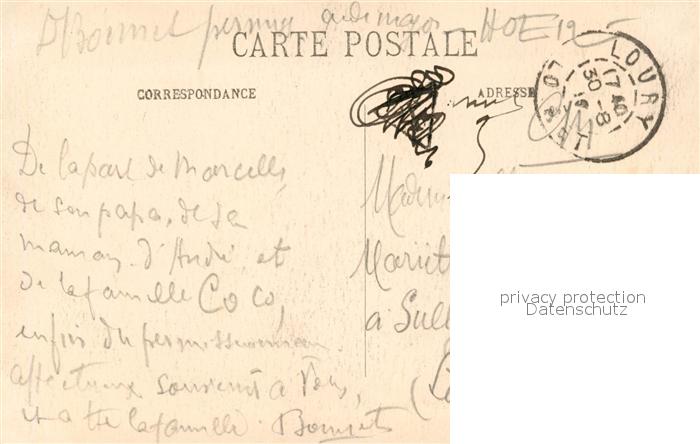 Dr Bonnet permis aide major HOE 19
CARTE POSTALE
CORRESPONDANCE
ADRESSE
LOURY
17 40
30 -8
De la part de Marcelle,
de son papa, de sa
maman, d'André, et
de la famille Coco,
enfin du permissionnaire
affectueux souvenir à Vous,
et à tte la famille. Bonnet
à Sull
privacy protection
Datenschutz